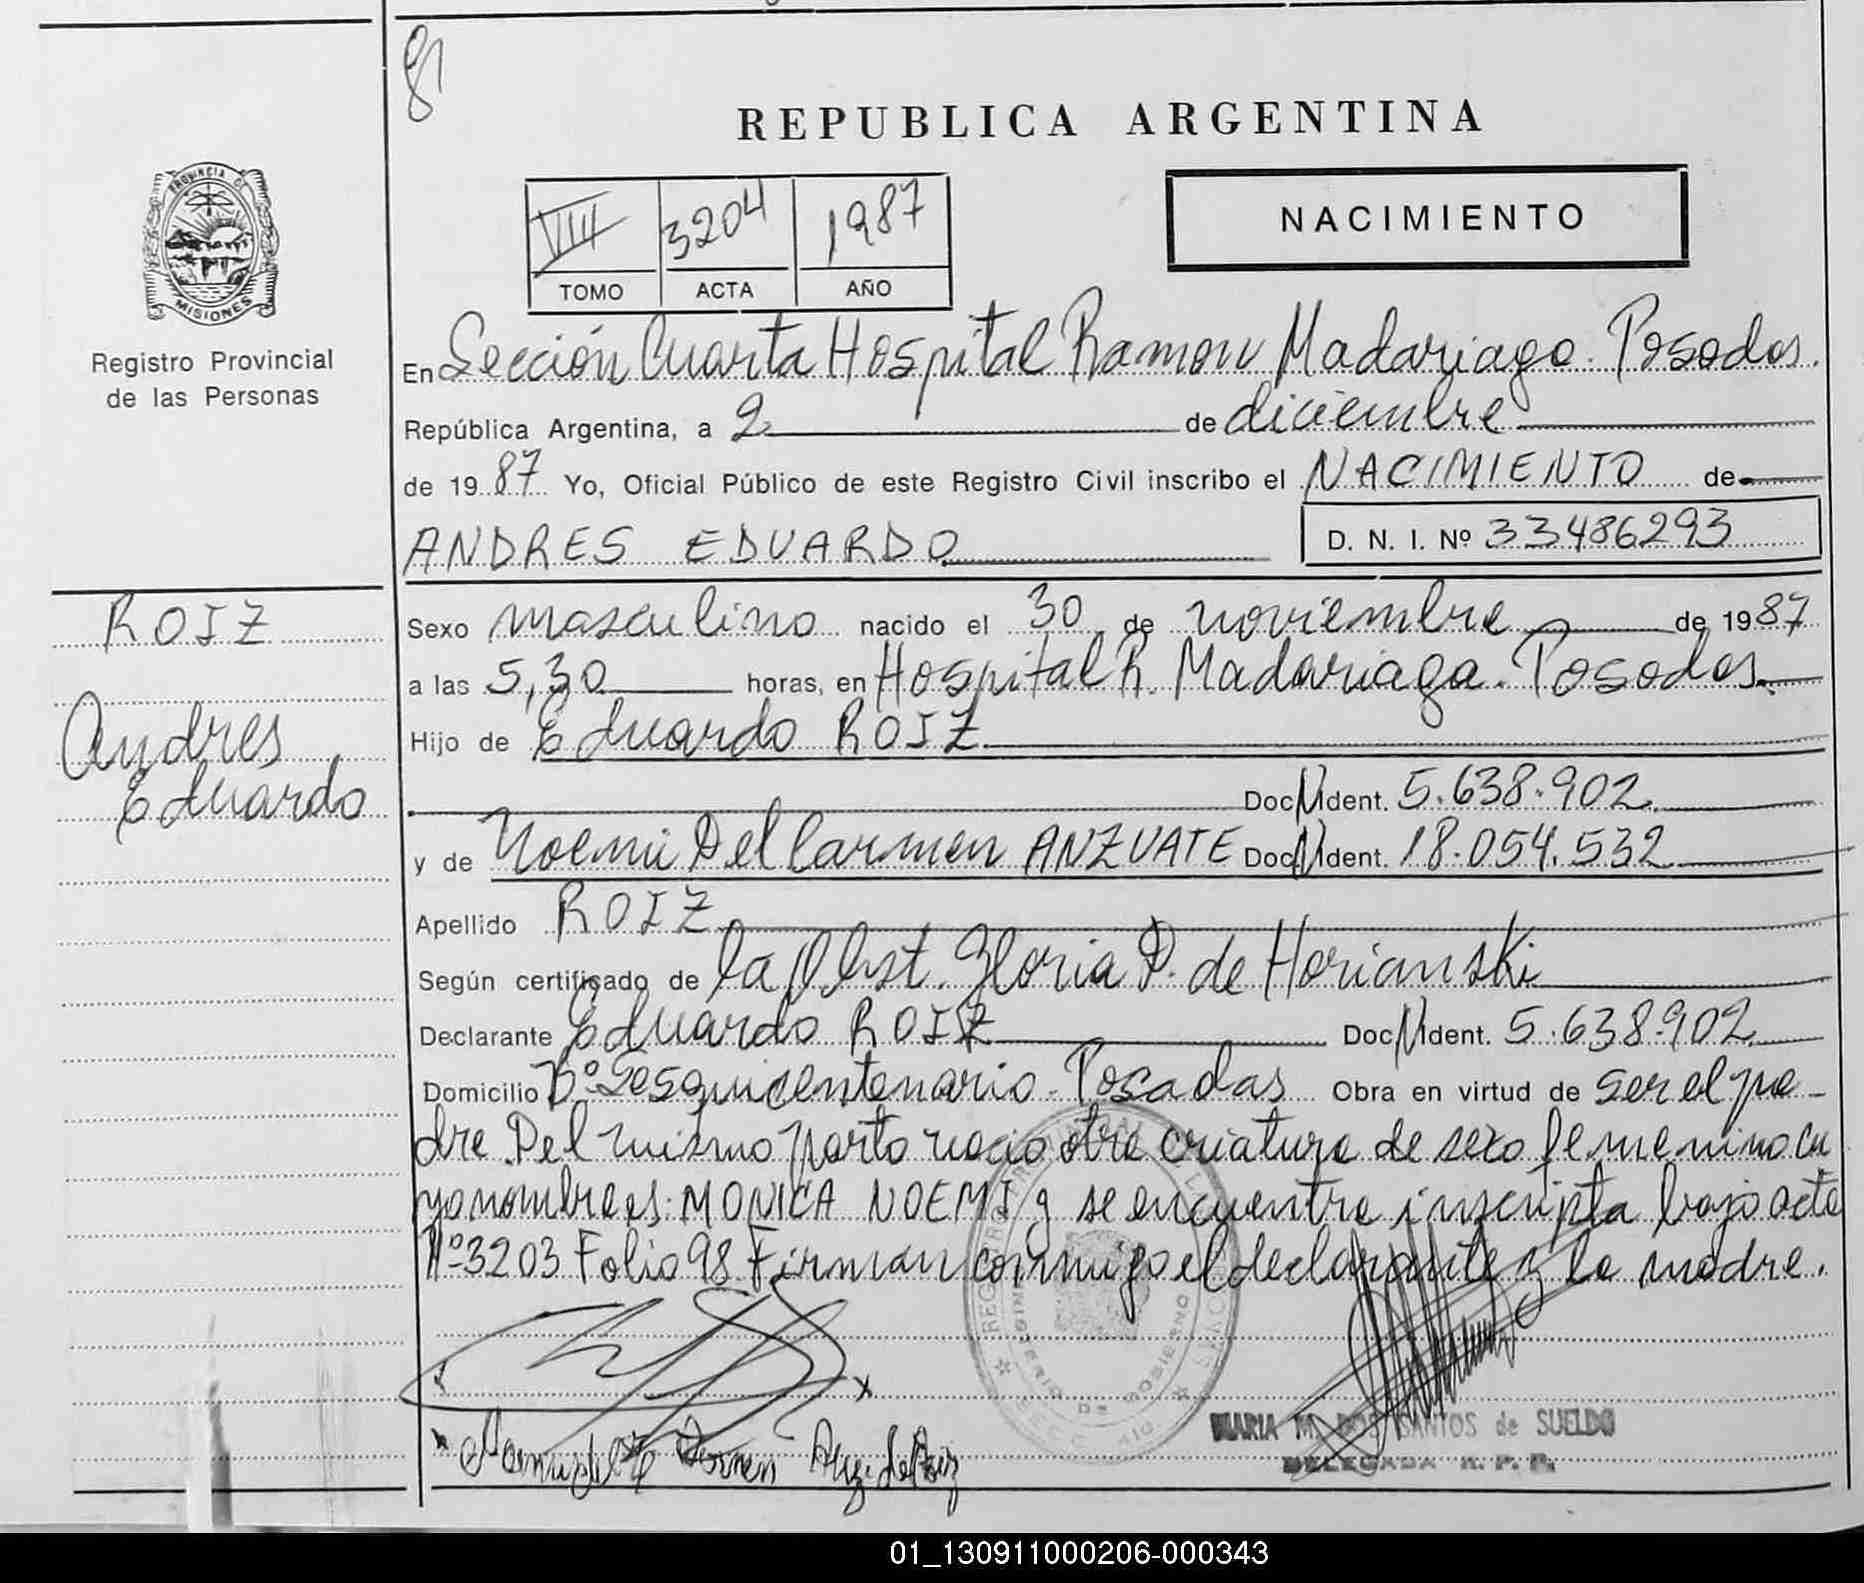 REPUBLICA ARGENTINA
PROVINCIA DE
MISIONES
Registro Provincial
de las Personas
VIII 3204 1987
TOMO ACTA AÑO
NACIMIENTO
En Sección Cuarta Hospital Ramon Madariaga. Posadas.
República Argentina, a 2 de diciembre
de 1987 Yo, Oficial Público de este Registro Civil inscribo el NACIMIENTO de
ANDRES EDUARDO D. N. I. Nº 33486293
ROIZ
Andres
Eduardo
Sexo masculino nacido el 30 de noviembre de 1987
a las 5,30 horas, en Hospital R. Madariaga. Posadas.
Hijo de Eduardo ROIZ
Doc N Ident. 5.638.902
y de Noemi Del Carmen ANZUATE Doc N Ident. 18.054.532
Apellido ROIZ
Según certificado de la Obst. Gloria P. de Horianski
Declarante Eduardo ROIZ Doc N Ident. 5.638.902
Domicilio Bº Sesquicentenario. Posadas Obra en virtud de ser el pa-
dre. Del mismo parto nació otra criatura de sexo femenino cu
yo nombre es: MONICA NOEMI y se encuentra inscripta bajo acta
Nº 3203 Folio 98 Firman conmigo el declarante y la madre.
MARIA M. DOS SANTOS de SUELDO
DELEGADA R. P. P.
01_130911000206-000343